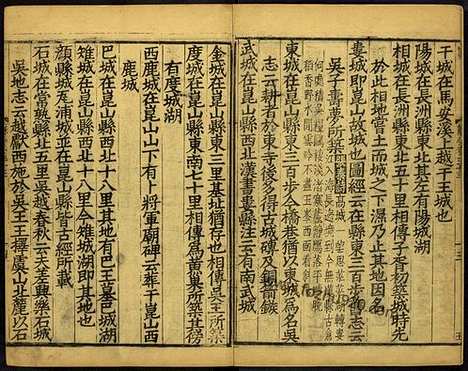 干城在馬安溪上越干王城也
陽城在長洲縣東二十五里其左有陽城湖
相城在長洲縣東北五十里相傳子胥初築城時先
於此相地嘗土而城之下濕乃止其地因名
婁城即崑山故城也圖經云在縣東三百步舊志云
吳子壽夢所築
東城在崑山縣東三百步今橋巷猶以東城為名吳
志云耕者於東寺後多得古城磚及銅箭鏃
武城在崑山縣西北漢書婁縣注云有南武城
金城在崑山縣東三里基猶存也相傳吳王所築
度城在崑山縣東南七十里相傳為黃巢所築其傍
有度城湖
西鹿城在崑山山下有卜將軍廟碑云葬于崑山西
鹿城
巴城在崑山縣西北十八里其地有巴王墓巴城湖
雉城在崑山縣西北十八里今雉城湖即其地也
顏縣城尾浦城並在崑山縣皆古經所載
石城在常熟縣北五里吳越春秋云美其樂石城
吳地志云越獻西施於吳王王擇虞山北麓以石